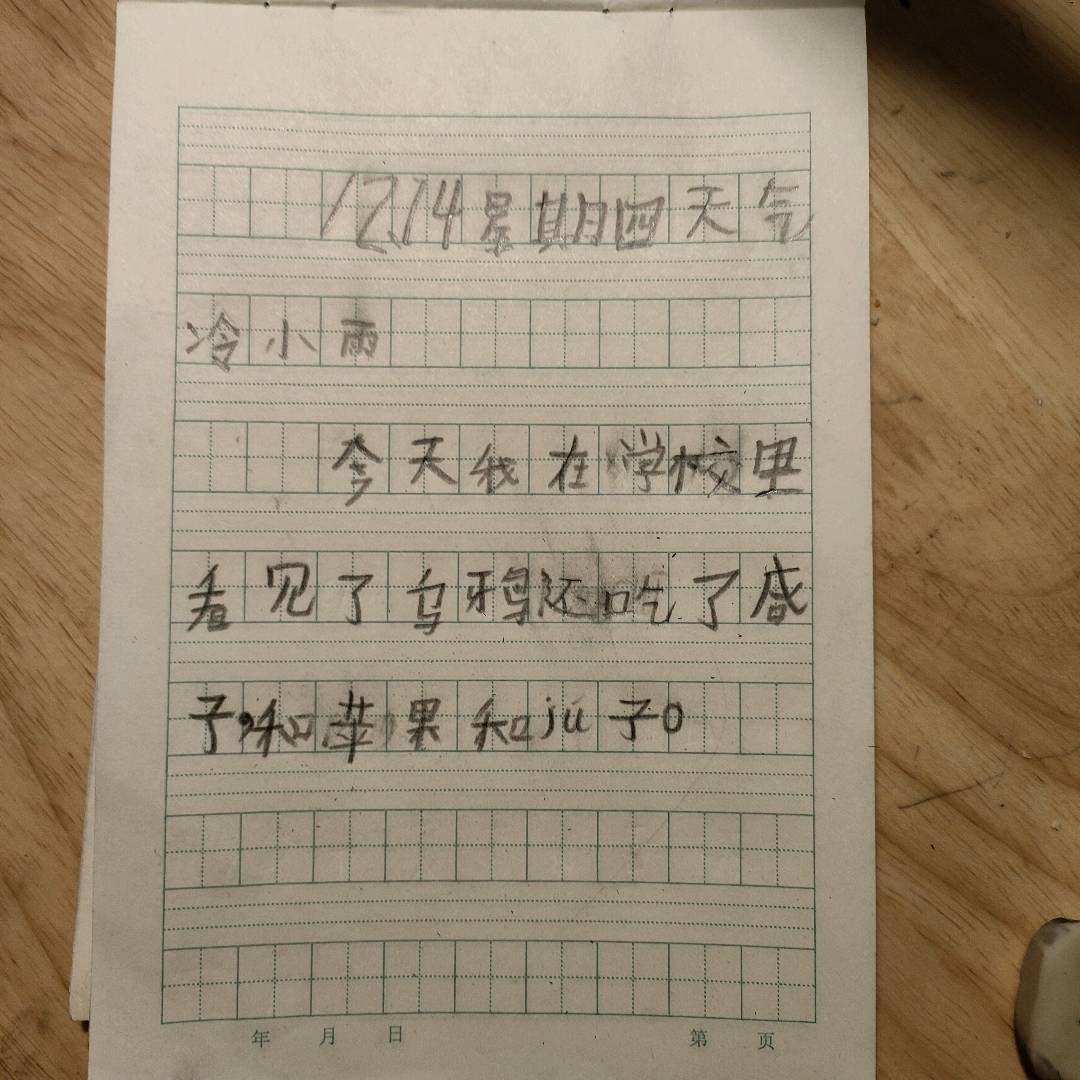 12.14星期四天气
冷小雨
今天我在学校里
看见了乌鸦还吃了
子,和苹果和jú子。
年 月 日 第 页